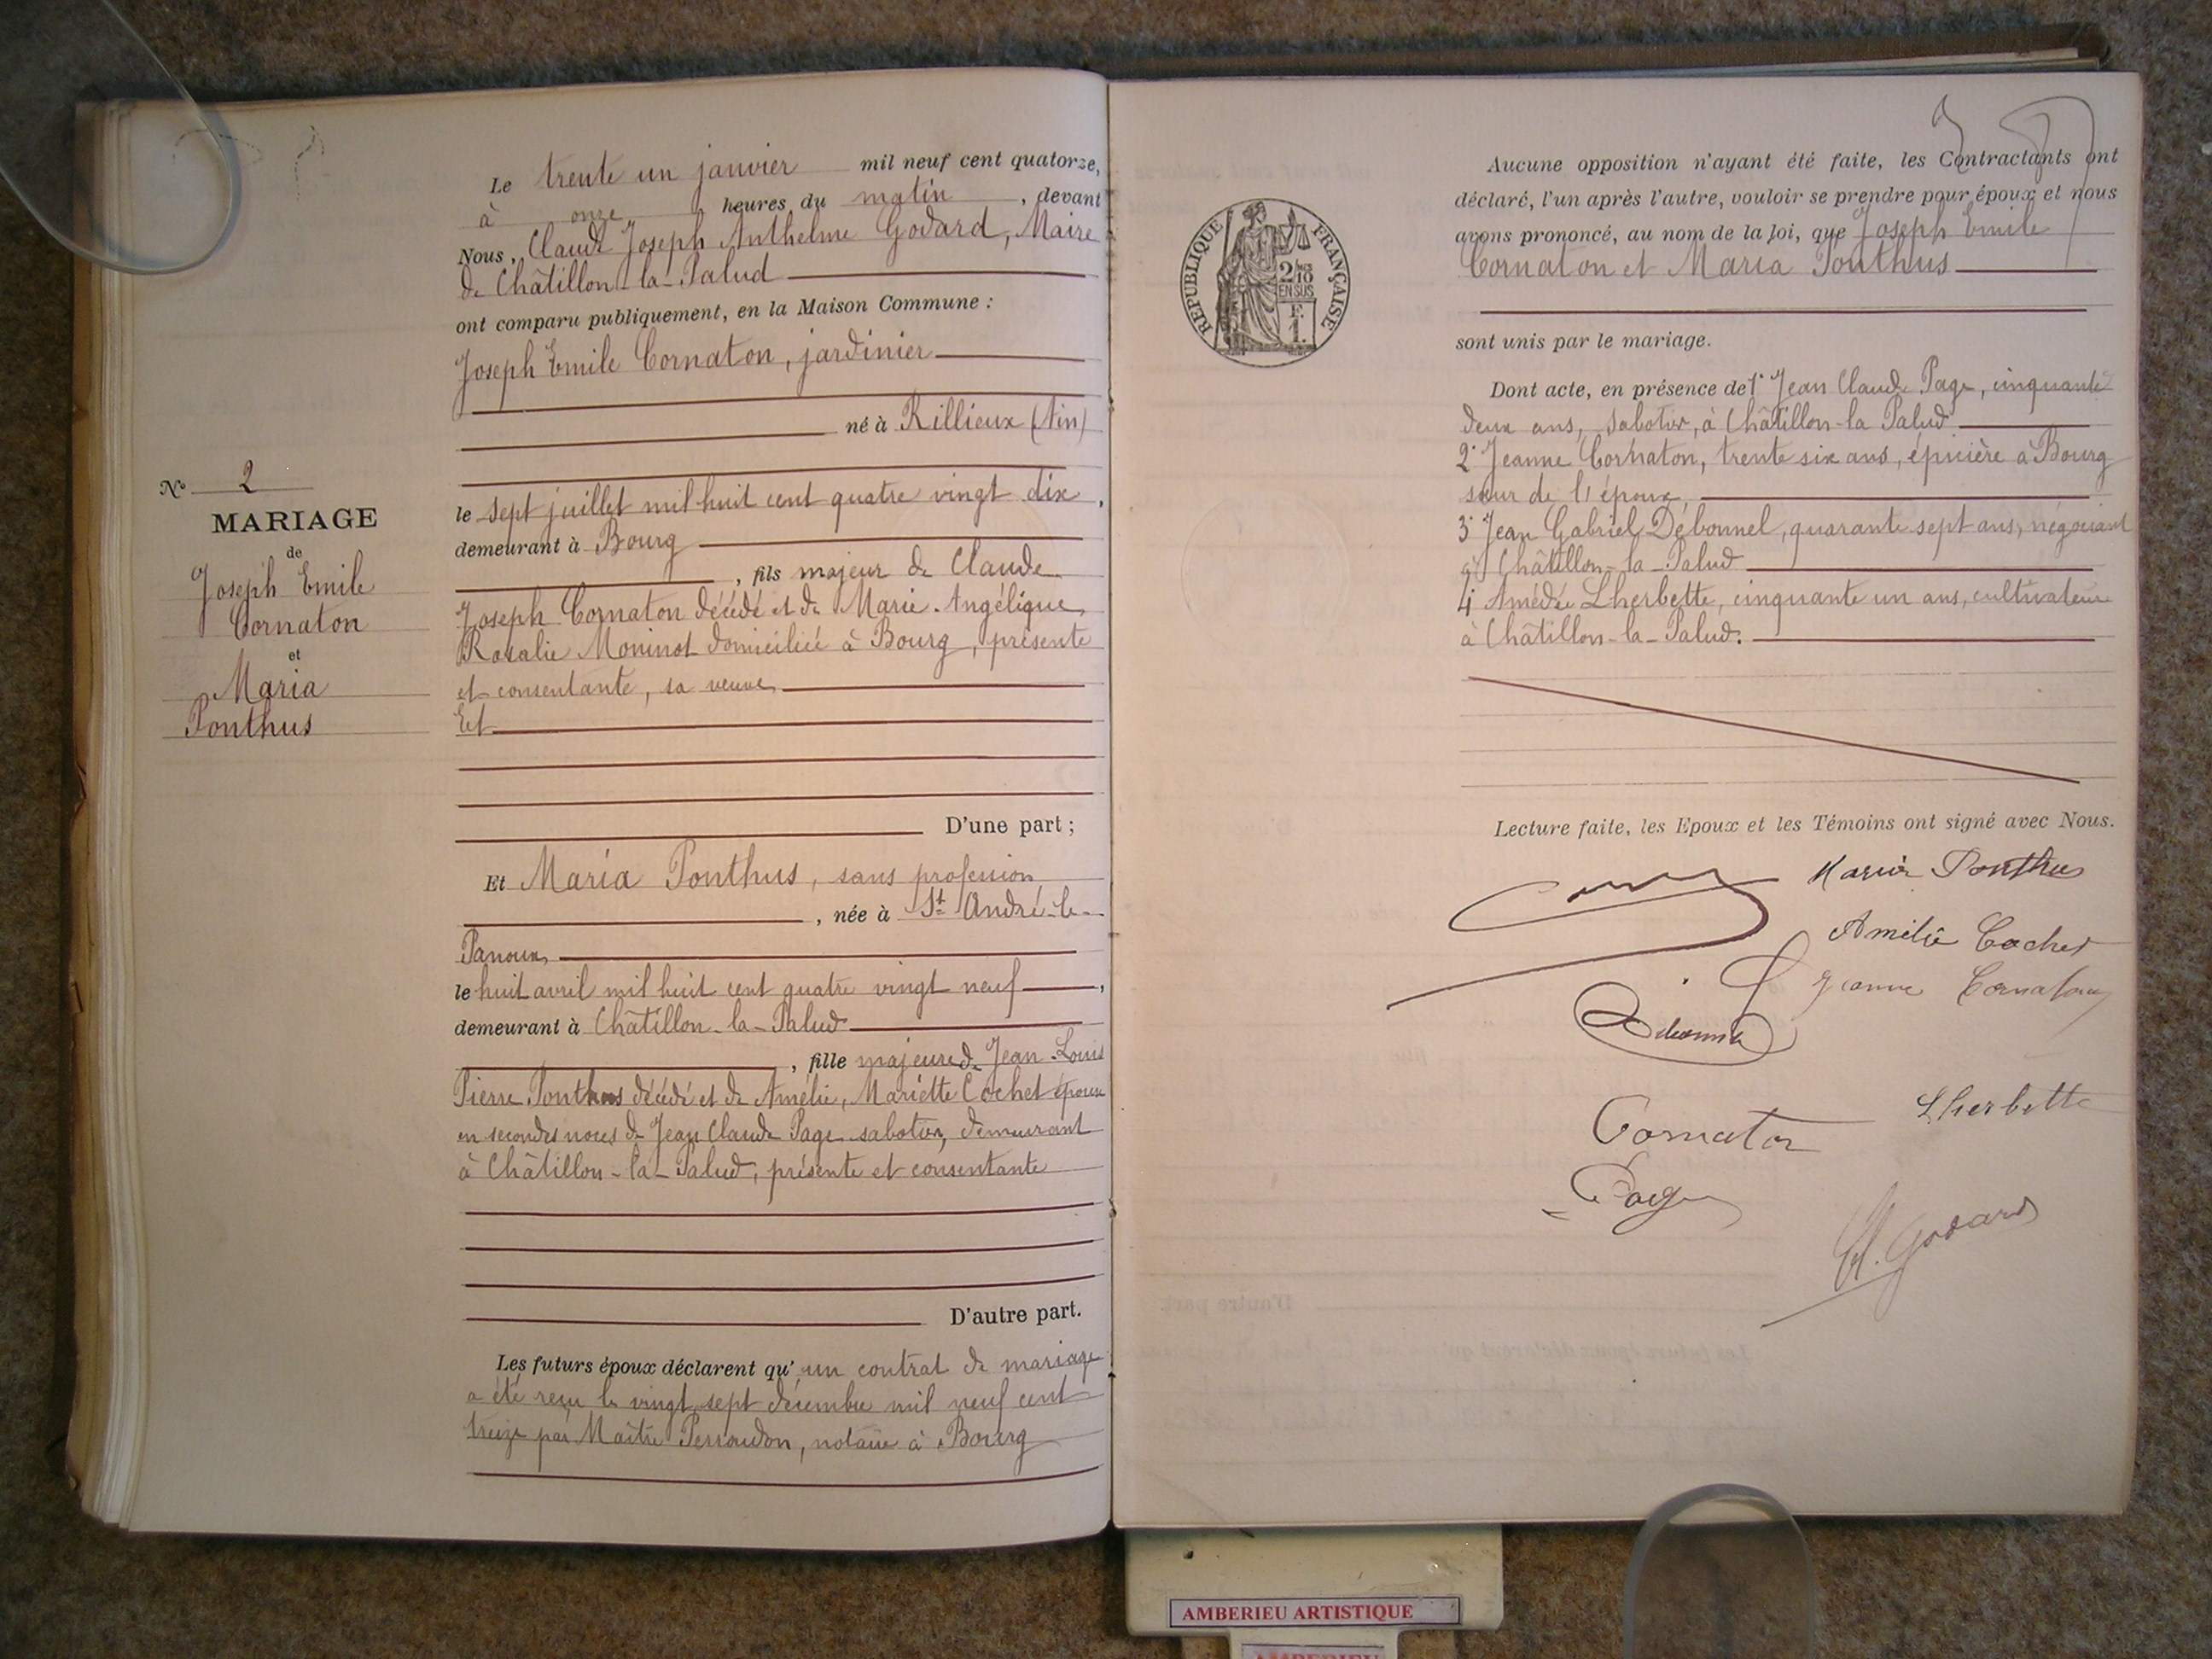 Le trente un janvier mil neuf cent quatorze,
à onze heures du matin, devant
Nous, Claude Joseph Anthelme Godard, Maire
de Châtillon-la-Palud
ont comparu publiquement, en la Maison Commune :
Joseph Emile Cornaton, jardinier
né à Rillieux (Ain)
le sept juillet mil huit cent quatre vingt dix,
demeurant à Bourg
, fils majeur de Claude
Joseph Cornaton décédé et de Marie-Angélique
Rosalie Moninot domiciliée à Bourg, présente
et consentante, sa veuve
Et
D'une part ;
Et Maria Ponthus, sans profession
, née à St André-le-
Panoux
le huit avril mil huit cent quatre vingt neuf,
demeurant à Châtillon-la-Palud
, fille majeure de Jean-Louis
Pierre Ponthus décédé et de Amélie, Mariette Cochet épouse
en secondes noces de Jean Claude Page sabotier, demeurant
à Châtillon-la-Palud, présente et consentante
D'autre part.
Les futurs époux déclarent qu'un contrat de mariage
a été reçu le vingt sept décembre mil neuf cent
treize par Maître Perroudon, notaire à Bourg
No 2
MARIAGE
de
Joseph Emile
Cornaton
et
Maria
Ponthus
REPUBLIQUE FRANÇAISE
2/10
EN SUS
F.
1.
Aucune opposition n'ayant été faite, les Contractants ont
déclaré, l'un après l'autre, vouloir se prendre pour époux et nous
avons prononcé, au nom de la loi, que Joseph Emile
Cornaton et Maria Ponthus
sont unis par le mariage.
Dont acte, en présence de 1° Jean Claude Page, cinquante
deux ans, sabotier, à Châtillon-la-Palud
2° Jeanne Cornaton, trente six ans, épicière à Bourg
sœur de l'époux,
3° Jean Gabriel Débonnel, quarante sept ans, négociant
à Châtillon-la-Palud
4° Amédée Lherbette, cinquante un ans, cultivateur
à Châtillon-la-Palud.
Lecture faite, les Epoux et les Témoins ont signé avec Nous.
Maria Ponthus
Amélie Cochet
Jeanne Cornaton
Lherbette
Cornaton
Page
Cl. Godard
AMBERIEU ARTISTIQUE
AMBERIEU